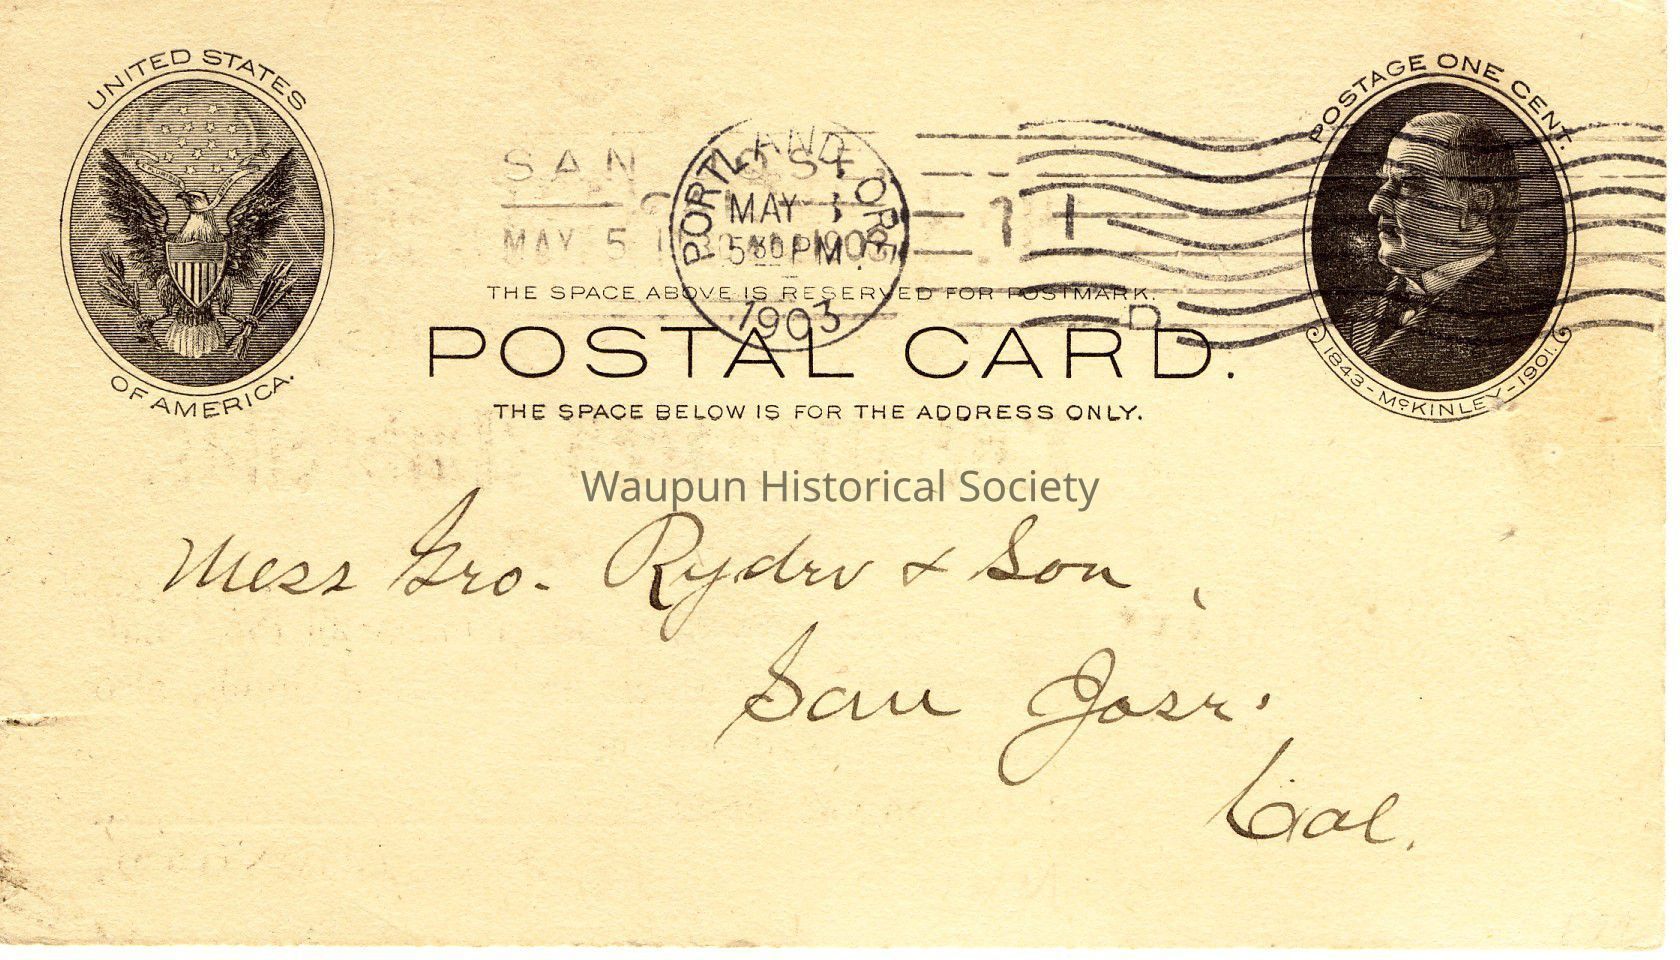 UNITED STATES
OF AMERICA.
POSTAGE ONE CENT.
1843-McKINLEY-1901.
SAN JOSE
MAY 5 1903
PORTLAND ORE
MAY
5 30 PM
1903
THE SPACE ABOVE IS RESERVED FOR POSTMARK.
D
POSTAL CARD.
THE SPACE BELOW IS FOR THE ADDRESS ONLY.
Waupun Historical Society
Mess Geo. Ryder & Son,
San Jose.
Cal.